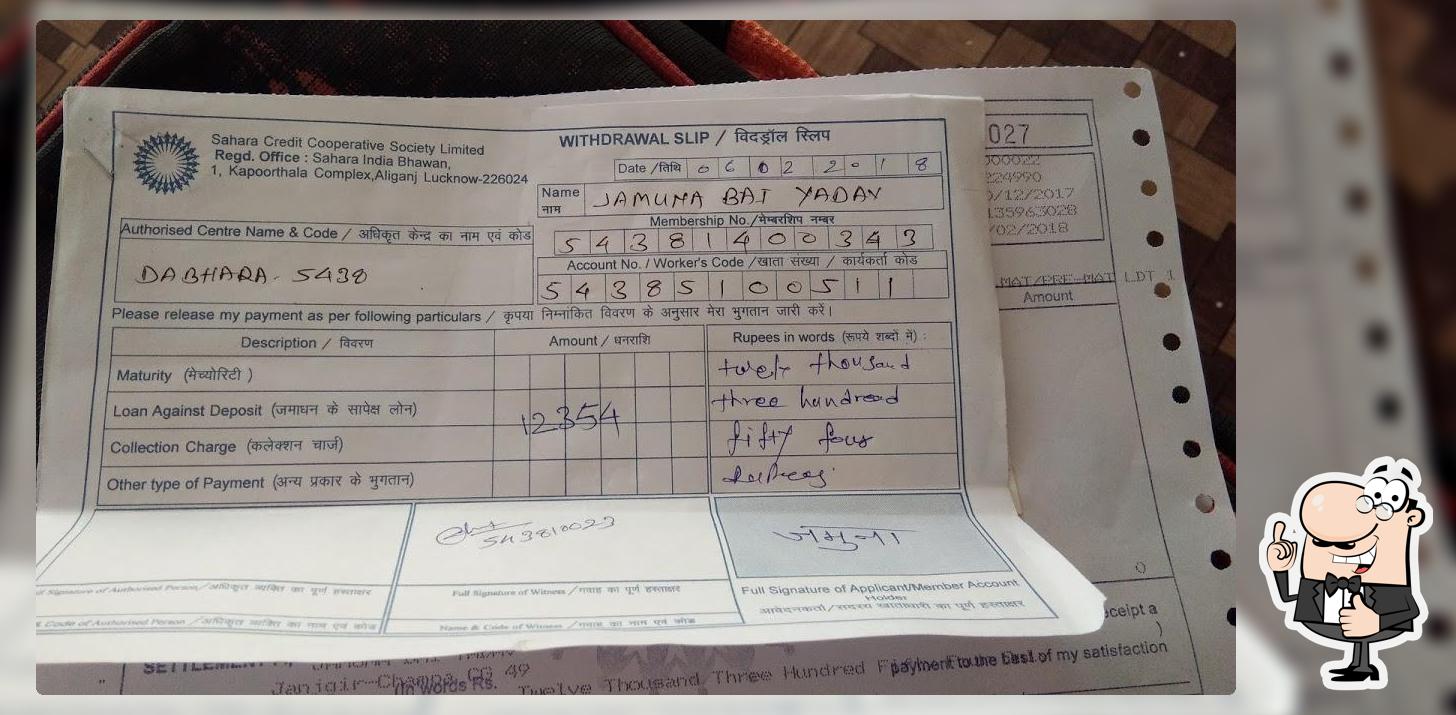 Sahara Credit Cooperative Society Limited
Regd. Office : Sahara India Bhawan,
1, Kapoorthala Complex,Aliganj Lucknow-226024
WITHDRAWAL SLIP / विदड्रॉल स्लिप
Date /तिथि 0 6 0 2 2 0 1 8
Name JAMUNA BAI YADAV
नाम
Membership No./मेम्बरशिप नम्बर
5 4 3 8 1 4 0 0 3 4 3
Authorised Centre Name & Code / अधिकृत केन्द्र का नाम एवं कोड
DABHARA- 5438
Account No. / Worker's Code /खाता संख्या / कार्यकर्ता कोड
5 4 3 8 5 1 0 0 5 1 1
Please release my payment as per following particulars / कृपया निम्नांकित विवरण के अनुसार मेरा भुगतान जारी करें।
Description / विवरण
Amount / धनराशि
Rupees in words (रूपये शब्दों में) :
Maturity (मेच्योरिटी )
Loan Against Deposit (जमाधन के सापेक्ष लोन)
Collection Charge (कलेक्शन चार्ज)
Other type of Payment (अन्य प्रकार के भुगतान)
12354
thousand
three hundread
fifty four
543810023
जमुना
Signature of Authorised Person/अधिकृत व्यक्ति का पूर्ण हस्ताक्षर
Code of Authorised Person / अधिकृत व्यक्ति का नाम एवं कोड
Full Signature of Witness /गवाह का पूर्ण हस्ताक्षर
Name & Code of Witness /गवाह का नाम एवं कोड
Full Signature of Applicant/Member Account
Holder
आवेदनकर्ता/सदस्य खाताधारी का पूर्ण हस्ताक्षर
027
000022
224990
/12/2017
135963028
/02/2018
MAT/PRE-MAT LDT 1
Amount
0
eceipt a
)
payment to the best of my satisfaction
SETTLEMENT
Janjgir-Champa CG 49
(In words Rs. Twelve Thousand Three Hundred